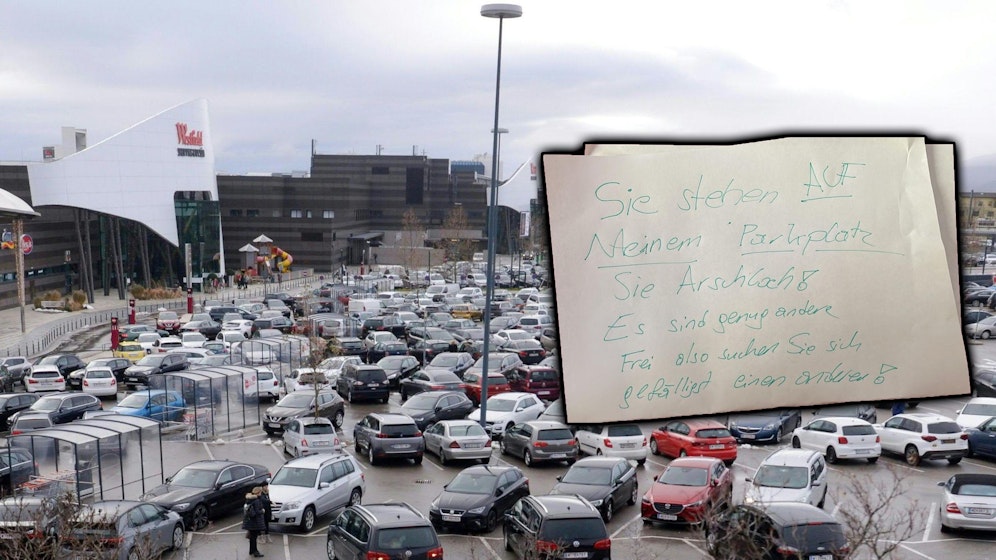 Westfield
Sie stehen AUF
Meinem Parkplatz
Sie Arschloch!
Es sind genug andere
Frei also suchen Sie sich
gefälligst einen anderen!